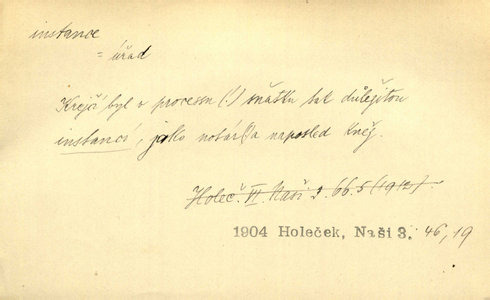 instance
= úřad
Krejčí byl v processu (!) sňatku tak důležitou
instancí, jako notář a naposled kněz.
Holeč. VI. Naši 3. 66.5 (1912).
1904 Holeček, Naši 3. 46, 19